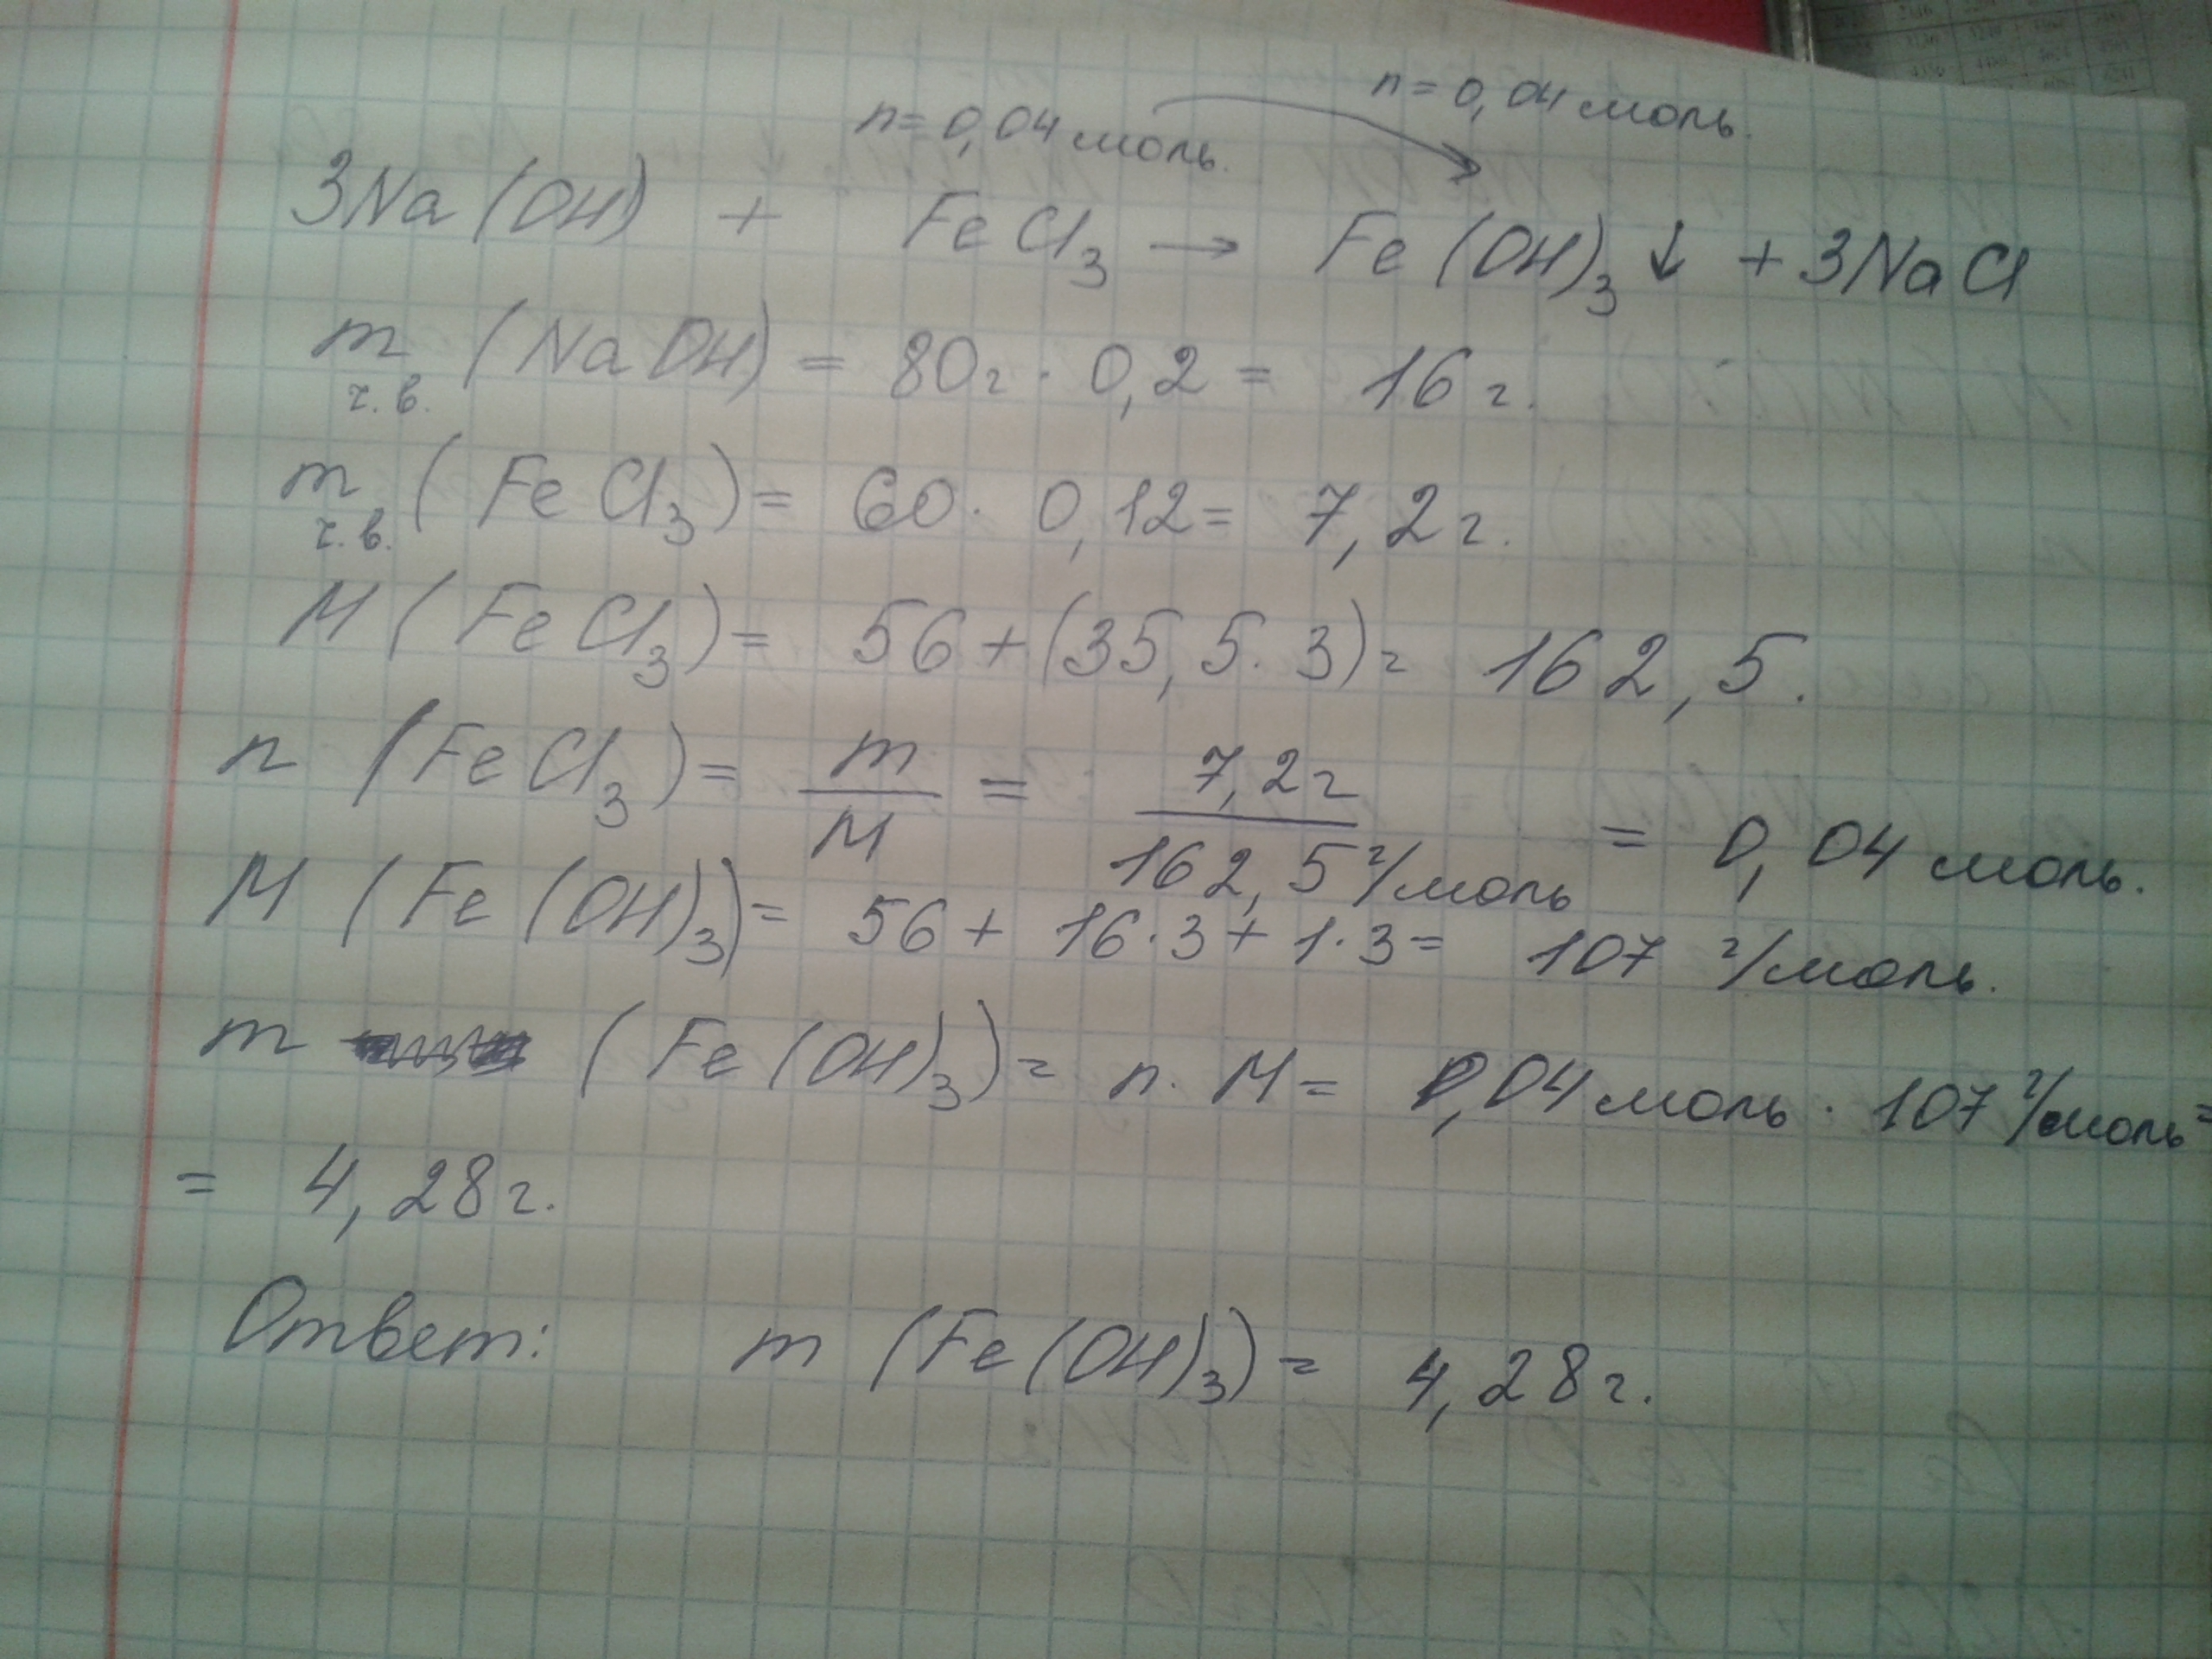 n = 0,04 моль. n = 0,04 моль.
3Na(OH) + FeCl₃ → Fe(OH)₃↓ + 3NaCl
m ч.в. (NaOH) = 80г · 0,2 = 16 г.
m ч.в. (FeCl₃) = 60 · 0,12 = 7,2 г.
M (FeCl₃) = 56 + (35,5 · 3) = 162,5.
n (FeCl₃) = m/M = 7,2г / 162,5 г/моль = 0,04 моль.
M (Fe(OH)₃) = 56 + 16·3 + 1·3 = 107 г/моль.
m (Fe(OH)₃) = n · M = 0,04 моль · 107 г/моль =
= 4,28 г.
Ответ: m (Fe(OH)₃) = 4,28 г.